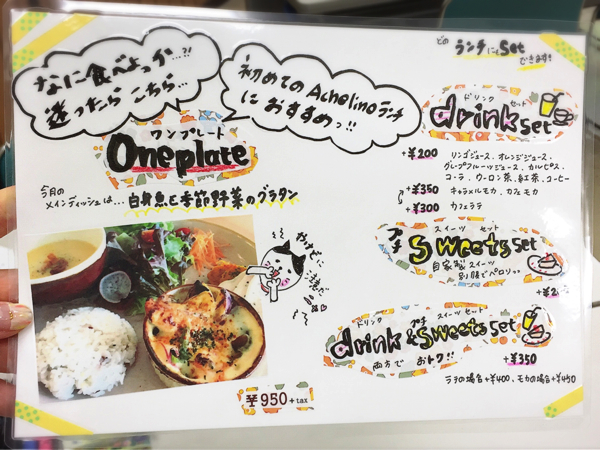 なに食べよっか…?!
迷ったら こちら…
初めての Achelinoランチ
に おすすめっ!!
どの ランチにもset
できます!
ワンプレート
Oneplate
今月の
メインディッシュは… 白身魚と季節野菜のグラタン
ドリンク セット
drink set
+¥200 リンゴジュース、オレンジジュース、
グレープフルーツジュース、カルピス、
コーラ、ウーロン茶、紅茶、コーヒー
+¥350 キャラメルモカ、カフェモカ
+¥300 カフェラテ
スイーツ セット
プチ sweets set
自家製スイーツ
別腹でペロリっ♡
やけどに
注意だ
ドリンク プチ スイーツ セット
drink & sweets set
両方で おトク!!
+¥350
ラテの場合+¥400、モカの場合+¥450
¥950+tax